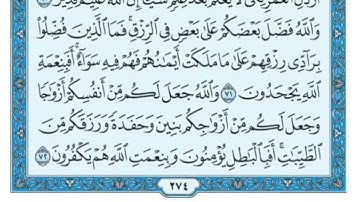 أَرْذَلِ ٱلْعُمُرِ لِكَىْ لَا يَعْلَمَ بَعْدَ عِلْمٍ شَيْـًٔا إِنَّ ٱللَّهَ عَلِيمٌ قَدِيرٌ ٧٠
وَٱللَّهُ فَضَّلَ بَعْضَكُمْ عَلَىٰ بَعْضٍ فِى ٱلرِّزْقِ ۚ فَمَا ٱلَّذِينَ فُضِّلُوا۟
بِرَآدِّى رِزْقِهِمْ عَلَىٰ مَا مَلَكَتْ أَيْمَٰنُهُمْ فَهُمْ فِيهِ سَوَآءٌ ۚ أَفَبِنِعْمَةِ
ٱللَّهِ يَجْحَدُونَ ٧١ وَٱللَّهُ جَعَلَ لَكُم مِّنْ أَنفُسِكُمْ أَزْوَٰجًا
وَجَعَلَ لَكُم مِّنْ أَزْوَٰجِكُم بَنِينَ وَحَفَدَةً وَرَزَقَكُم مِّنَ
ٱلطَّيِّبَٰتِ ۚ أَفَبِٱلْبَٰطِلِ يُؤْمِنُونَ وَبِنِعْمَتِ ٱللَّهِ هُمْ يَكْفُرُونَ ٧٢
٢٧٤